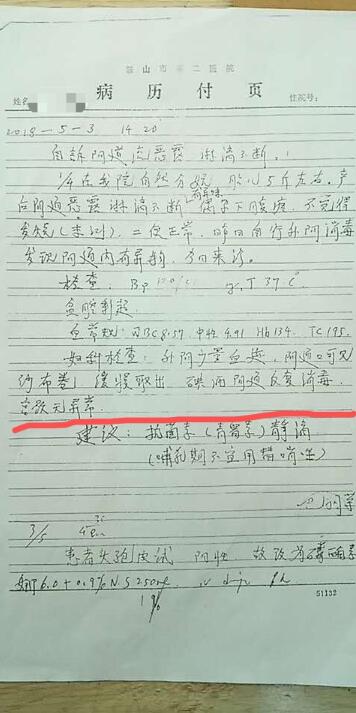 鞍山市第二医院
病历付页
姓名
住院号:
2018-5-3 14 20
自诉阴道流恶露 淋漓不断。
1/4在我院自然分娩, 胎儿5斤左右。产
有异味
后阴道恶露淋漓不断 偶子下腹疼,不觉得
发烧(未测),二便正常,昨日自行外阴消毒
发现阴道内有异物,今日来诊。
检查: Bp T 37℃
血常规: WBC 8.57 中性4.91 Hb 134.
妇科检查: 外阴少量血迹, 阴道口可见
纱布卷, 缓慢取出 碘酒阴道反复消毒.
宫颈无异常.
建议: 抗菌素(青霉素)静滴
(哺乳期不宜用硝唑)
3/5
患者头孢皮试 阳性 故改为
6.0+0.9% NS 250
51132